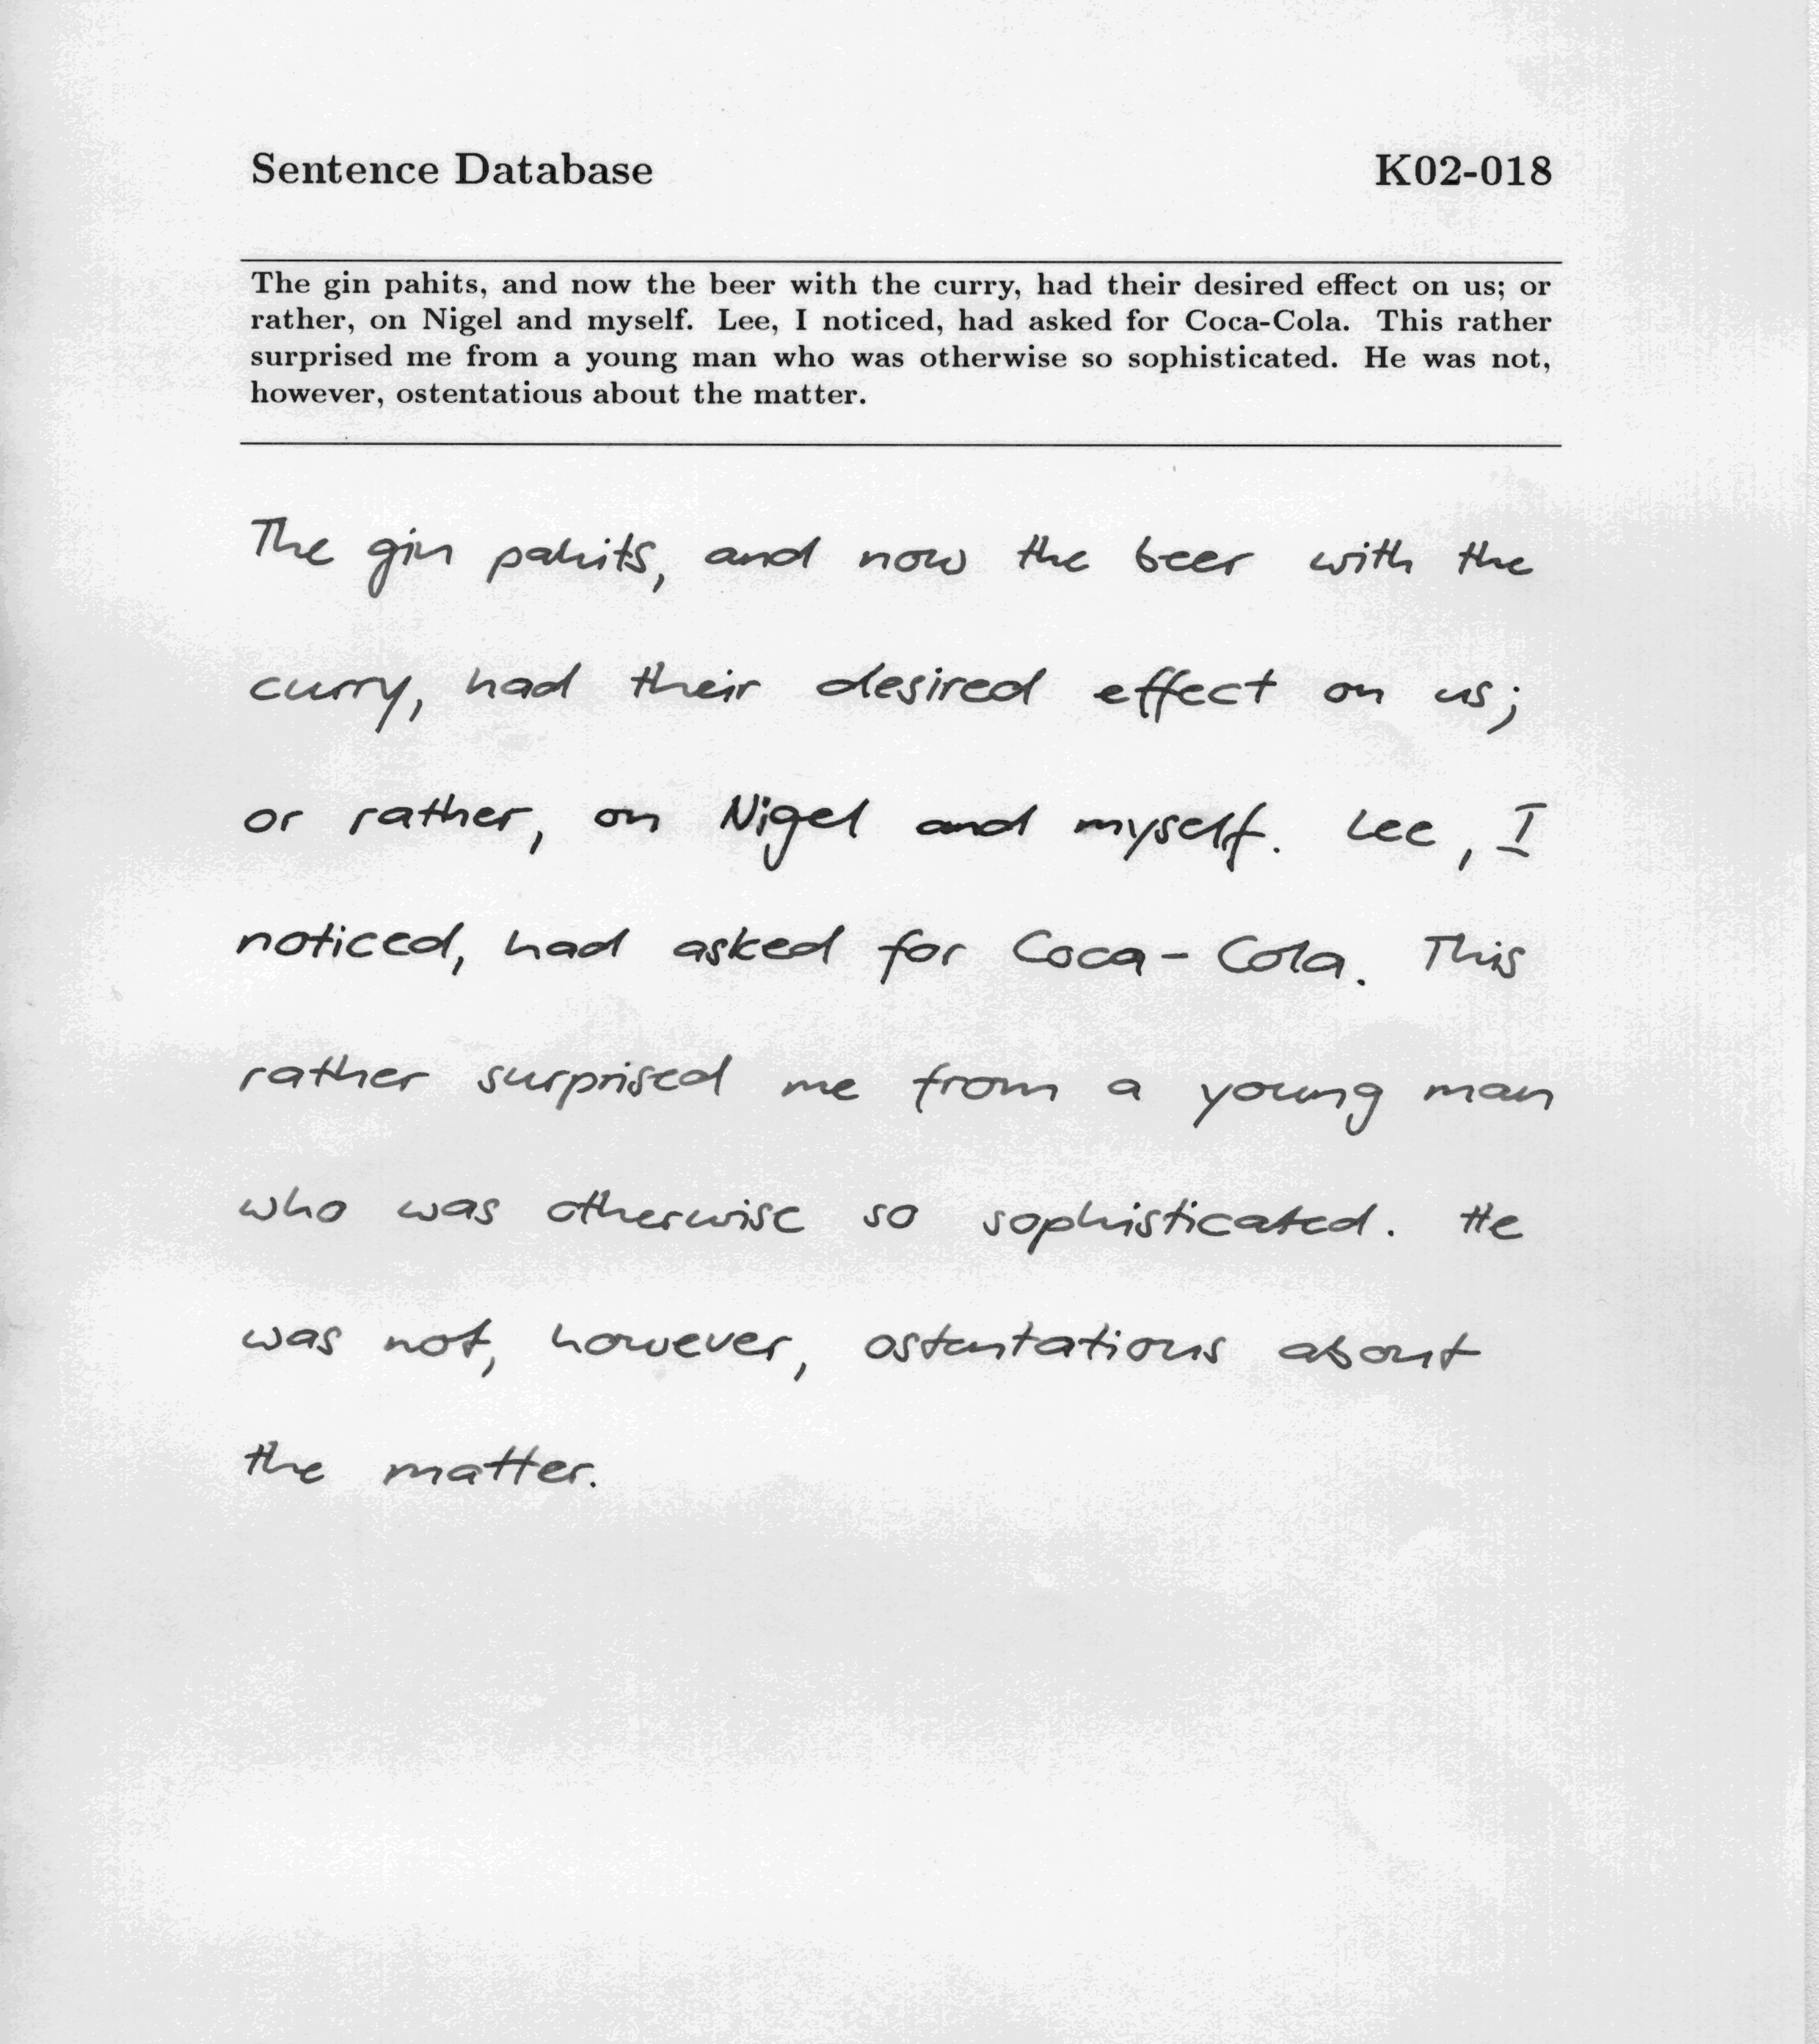 Sentence Database K02-018
The gin pahits, and now the beer with the curry, had their desired effect on us; or
rather, on Nigel and myself. Lee, I noticed, had asked for Coca-Cola. This rather
surprised me from a young man who was otherwise so sophisticated. He was not,
however, ostentatious about the matter.
The gin pahits, and now the beer with the
curry, had their desired effect on us;
or rather, on Nigel and myself. Lee, I
noticed, had asked for Coca-Cola. This
rather surprised me from a young man
who was otherwise so sophisticated. He
was not, however, ostentatious about
the matter.